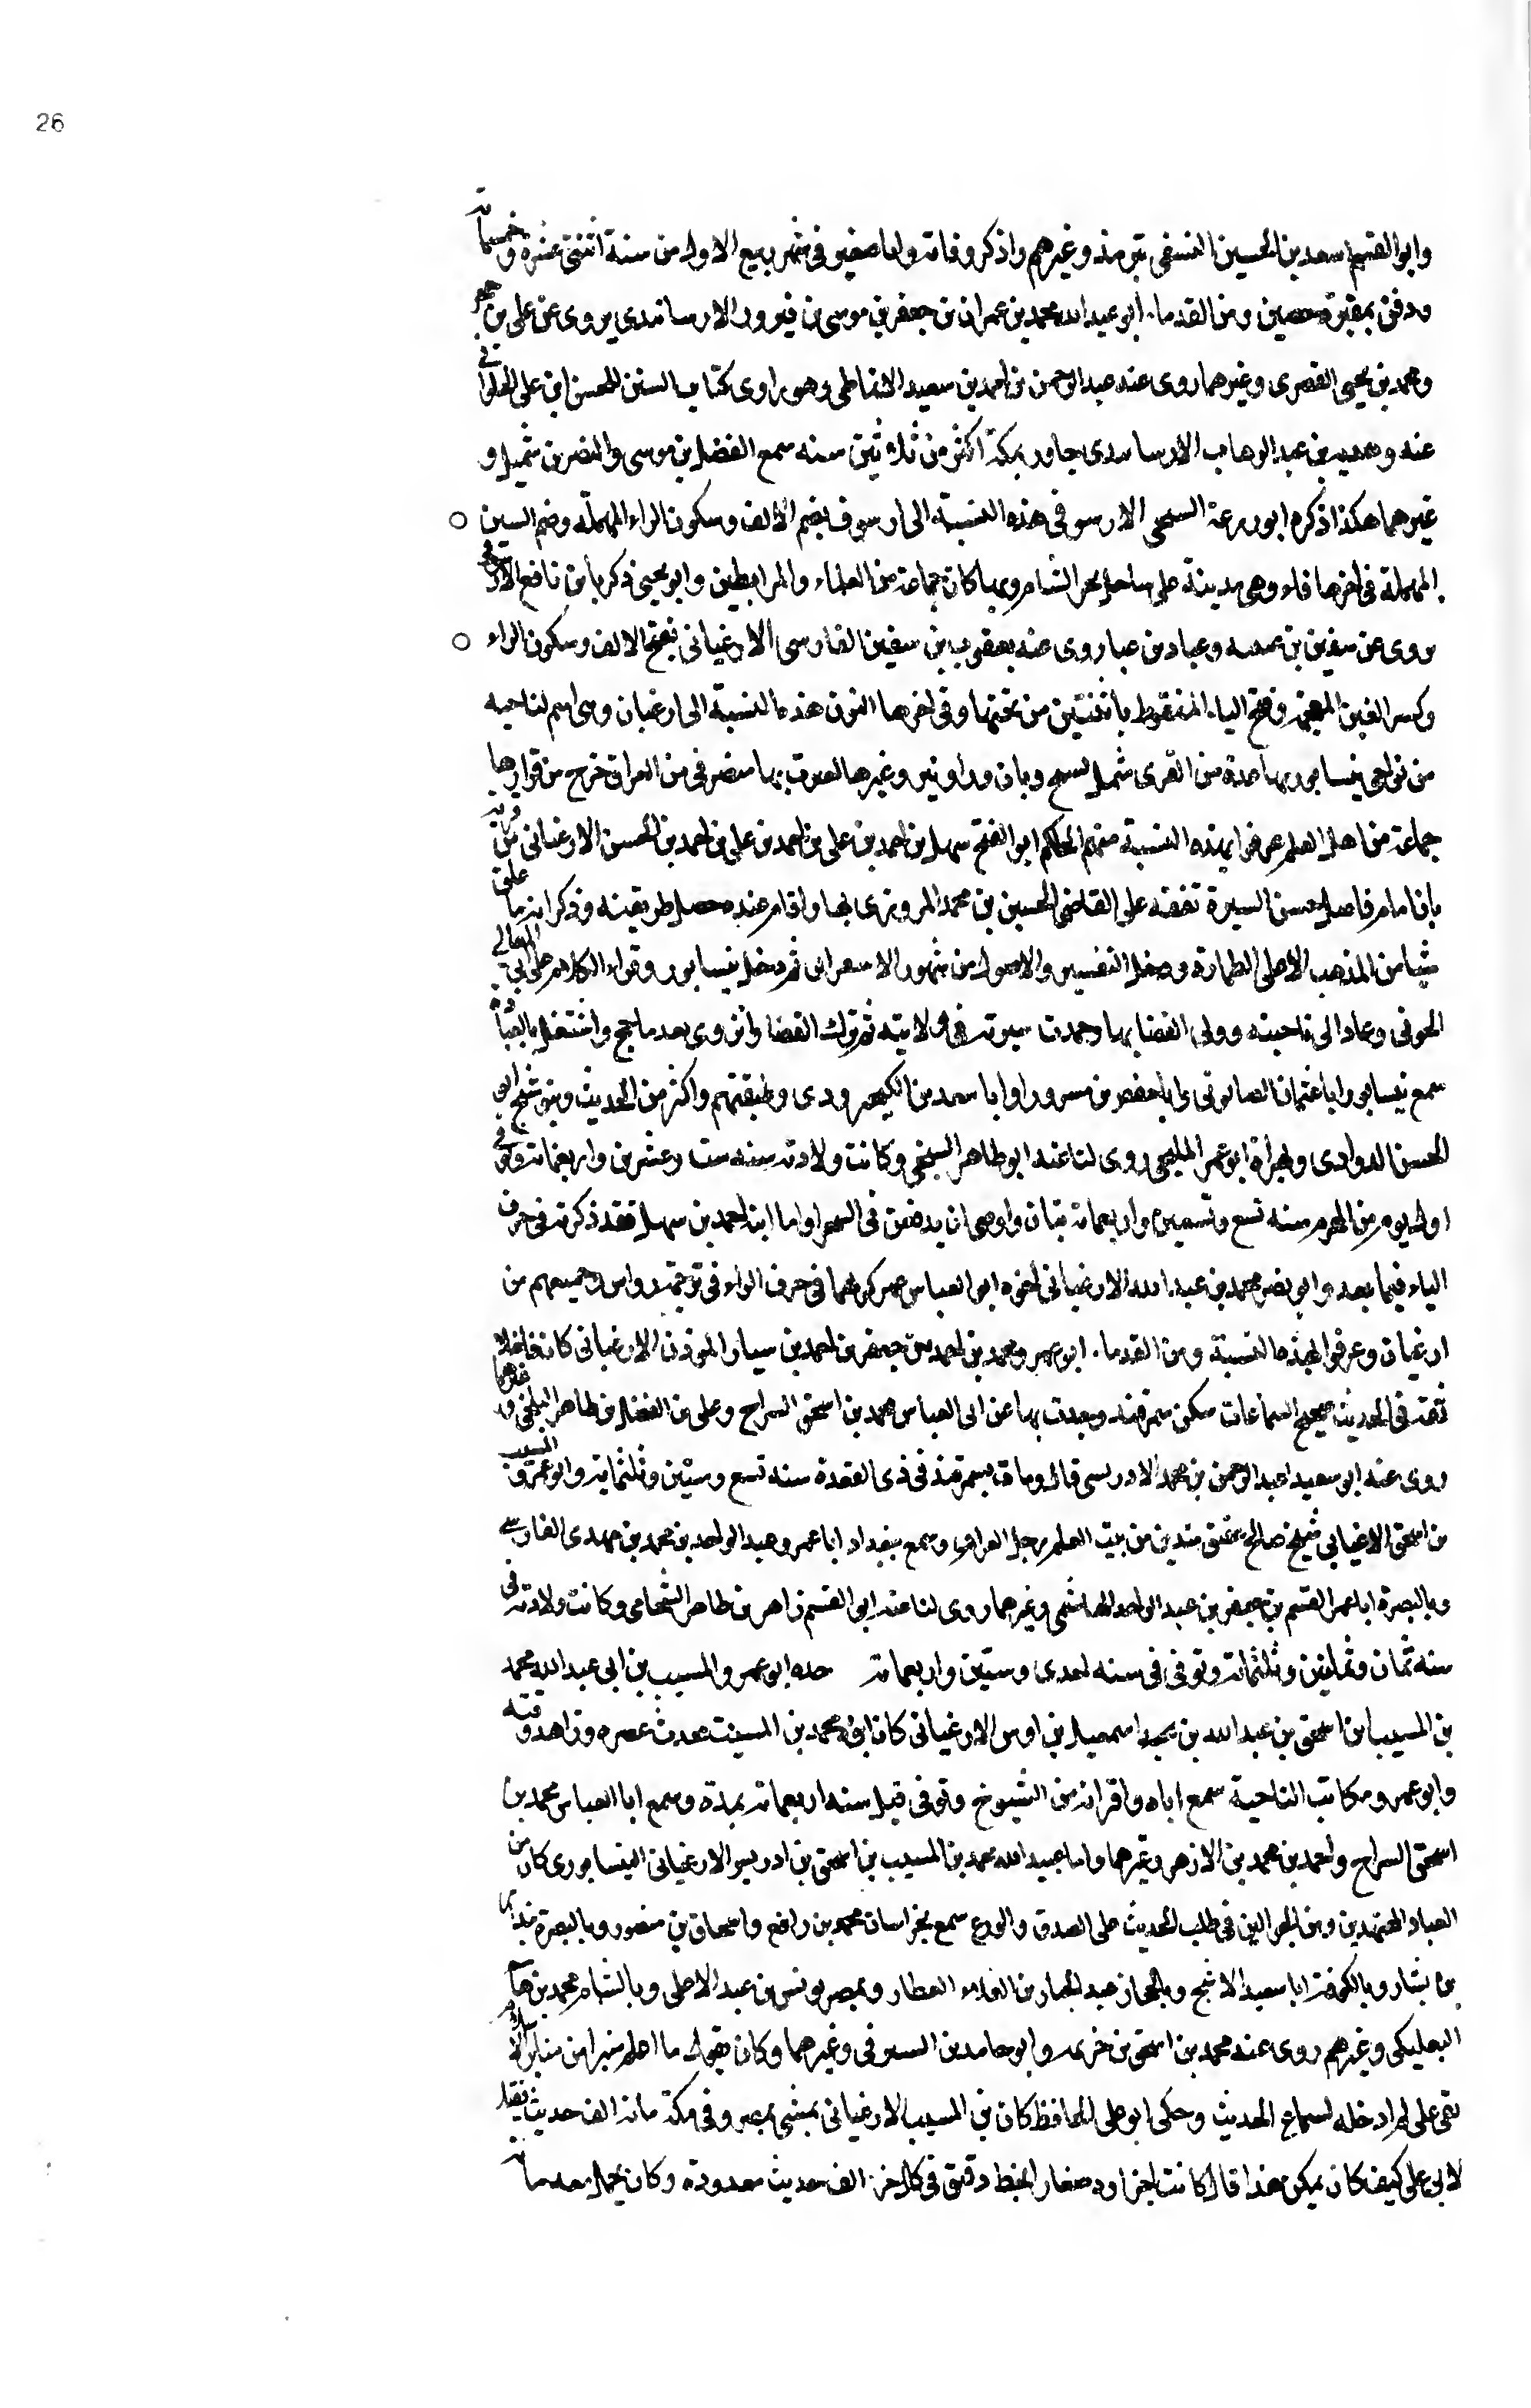 26
وابو القسم اسعد بن الحسين النسفى بترمذ وغيرهم واذكر وفاته وانا صغير فى شهر ربيع الاول من سنة اثنتى عشرة وخمسمائة
ودفن بمقبرة حصين ومن القدماء ابو عبد الله محمد بن عمران بن جعفر بن موسى بن فيروز الارسابندى يروى عن على بن حجر
ومحمد بن يحيى القصرى وغيرهما روى عنه عبد الرحمن بن احمد بن سعيد الانماطى وهو راوى كتاب السنن للحسن ابن على الحلوانى
عنه ومحمد بن عبد الوهاب الارسابندى جاور بمكة اكثر من ثلاثين سنه سمع الفضل بن موسى والنضر بن شميل و
غيرهما هكذا ذكره ابو زرعة السنجى الارسوفى هذه النسبة الى ارسوف بضم الالف وسكون الراء المهملة وضم السين
المهملة فى اخرها فاء وهى مدينة على ساحل بحر الشام وبها كان جماعة من العلماء والمرابطين وابو يحيى زكريا بن نافع الارسوفى
يروى عن سفين بن عيينه وعباد بن عباد روى عنه يعقوب بن سفين الفارسى الارغيانى بفتح الالف وسكون الراء
وكسر الغين المعجمة وفتح الياء المنقوطة باثنتين من تحتها وفى اخرها النون هذه النسبة الى ارغيان وهى اسم لناحيه
من نواحى نيسابور بها عدة من القرى مثل وبان وراونير وغيرها خرج من قراها
جماعة من اهل العلم عرفوا بهذه النسبة منهم الحاكم ابو الفتح سهل بن احمد بن على بن احمد بن على بن احمد بن الحسن الارغيانى من قرية
بان امام فاضل حسن السيرة تفقه على القاضى الحسين بن محمد المروزى بها واقام عنده حصل طريقته وذكر انه ما علق
شيا من المذهب الا على الطهارة وحفظ التفسير والاصول من شهور الاسفراينى ثم دخل نيسابور وقراء الكلام على ابى المعالى
الجوينى وعاد الى ناحيته وولى القضا بها وحمدت سيرته فى ولايته ثم ترك القضا وانزوى بعد ما حج واشتغل بالعبادة
سمع نيسابور ابا عثمان الصابونى وابا حفص بن مسرور وابا سعد بن الكنجرودى وطبقتهم واكثر من الحديث
الحسن الداودى وبهراة ابو عمر المليحى روى لنا عنه ابو طاهر السنجى وكانت ولادته سنه ست وعشرين واربعمائة وتوفى
اول يوم من المحرم سنه تسع وتسعين واربعمائة ببان واوصى ان يدفن فى الصحرا واما ابنه احمد بن سهل فقد ذكرته فى حرف
الباء فيما بعد وابو نصر محمد بن عبد الله الارغيانى اخوه ابو العباس عمر ذكرهما فى حرف الراء فى ترجمة وجميعهم من
ارغيان وعرفوا بهذه النسبة ومن القدماء ابو عمرو محمد بن احمد بن جعفر بن احمد بن سيار المؤذن الارغيانى كان فاضلا
ثقة فى الحديث صحيح السماعات سكن سمرقند وحدث بها عن ابى العباس محمد بن اسحق السراج وعلى بن الفضل بن طاهر البلخى وغيرهما
روى عنه ابو سعيد عبد الرحمن بن محمد الادريسى قال ومات بسمرقند فى ذى القعدة سنه تسع وستين وثلثمائة وابو عمرو المسيب
بن اسحق الارغيانى شيخ صالح عفيف متدين من بيت العلم رحل العراق وسمع ببغداد ابا عمرو عبد الواحد بن محمد بن مهدى الفارسى
وبالبصرة ابا عمر القسم بن جعفر بن عبد الواحد الهاشمى وغيرهما روى لنا عنه ابو القسم زاهر بن طاهر الشحامى وكانت ولادته فى
سنه ثمان وثمانين وثلثمائة وتوفى فى سنه احدى وستين واربعمائة جده ابو عمرو المسيب بن ابى عبد الله محمد
بن المسيب بن اسحق بن عبد الله بن اسمعيل بن اوس الارغيانى كان ابوه محمد بن المسيب محدث عصره وزاهد وقته
وابو عمرو مكاتب الناحية سمع اباه واقرانه من الشيوخ وتوفى قبل سنه اربعمائة بمدة وسمع ابا العباس محمد بن
اسحق السراج واحمد بن محمد بن الازهر وغيرهما واما عبيد الله محمد بن المسيب بن اسحق بن ادريس الارغيانى النيسابورى كان من
العباد المجتهدين ومن الجوالين فى طلب الحديث على الصدق والورع سمع بخراسان محمد بن رافع واسحاق بن منصور وبالبصرة بندار
بن بشار وبالكوفة ابا سعيد الاشج وبالحجاز عبد الجبار بن العلاء العطار وبمصر يونس بن عبد الاعلى وبالشام محمد بن هاشم
البعلبكى وغيرهم روى عنه محمد بن اسحق بن خزيمة وابو حامد بن الشرقى وغيرهما وكان يقول ما اعلم منبرا من منابر الاسلام
بقى على لم ادخله لسماع الحديث وحكى ابو على الحافظ كان بن المسيب الارغيانى يمشى بمصر وفى مكة مائة الف حديث فقيل
لابى على كيف كان يمكن هذا قال كانت اجزاوه صغار الخط دقيق فى كل جزء الف حديث معدودة وكان يحمل معه مائة